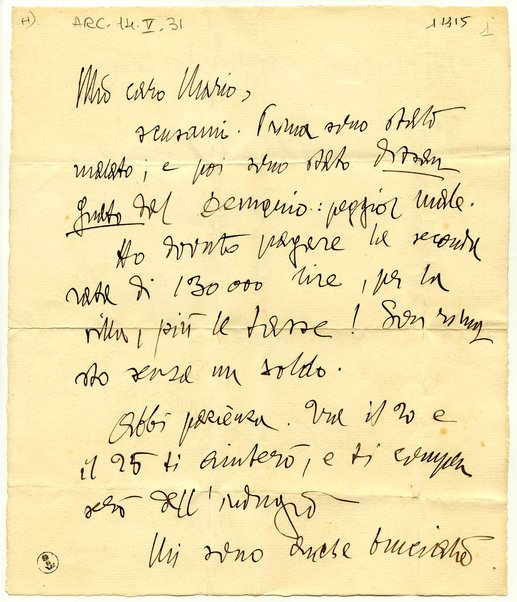 (H) ARC. 14. V. 31 11315 1
Mio caro Mario,
scusami. Prima sono stato
malato; e poi sono stato dissan
guato dal Demanio: peggior male.
Ho dovuto pagare la seconda
rata di 130000 lire, per la
villa, più le tasse! Son rima
sto senza un soldo.
Abbi pazienza. Tra il 20 e
il 25 ti aiuterò, e ti compen
serò dell'indugio
Mi sono anche bruciato